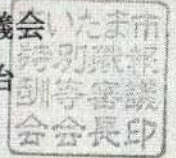 議会
治
さいたま市
特別職報
酬等審議
会会長印